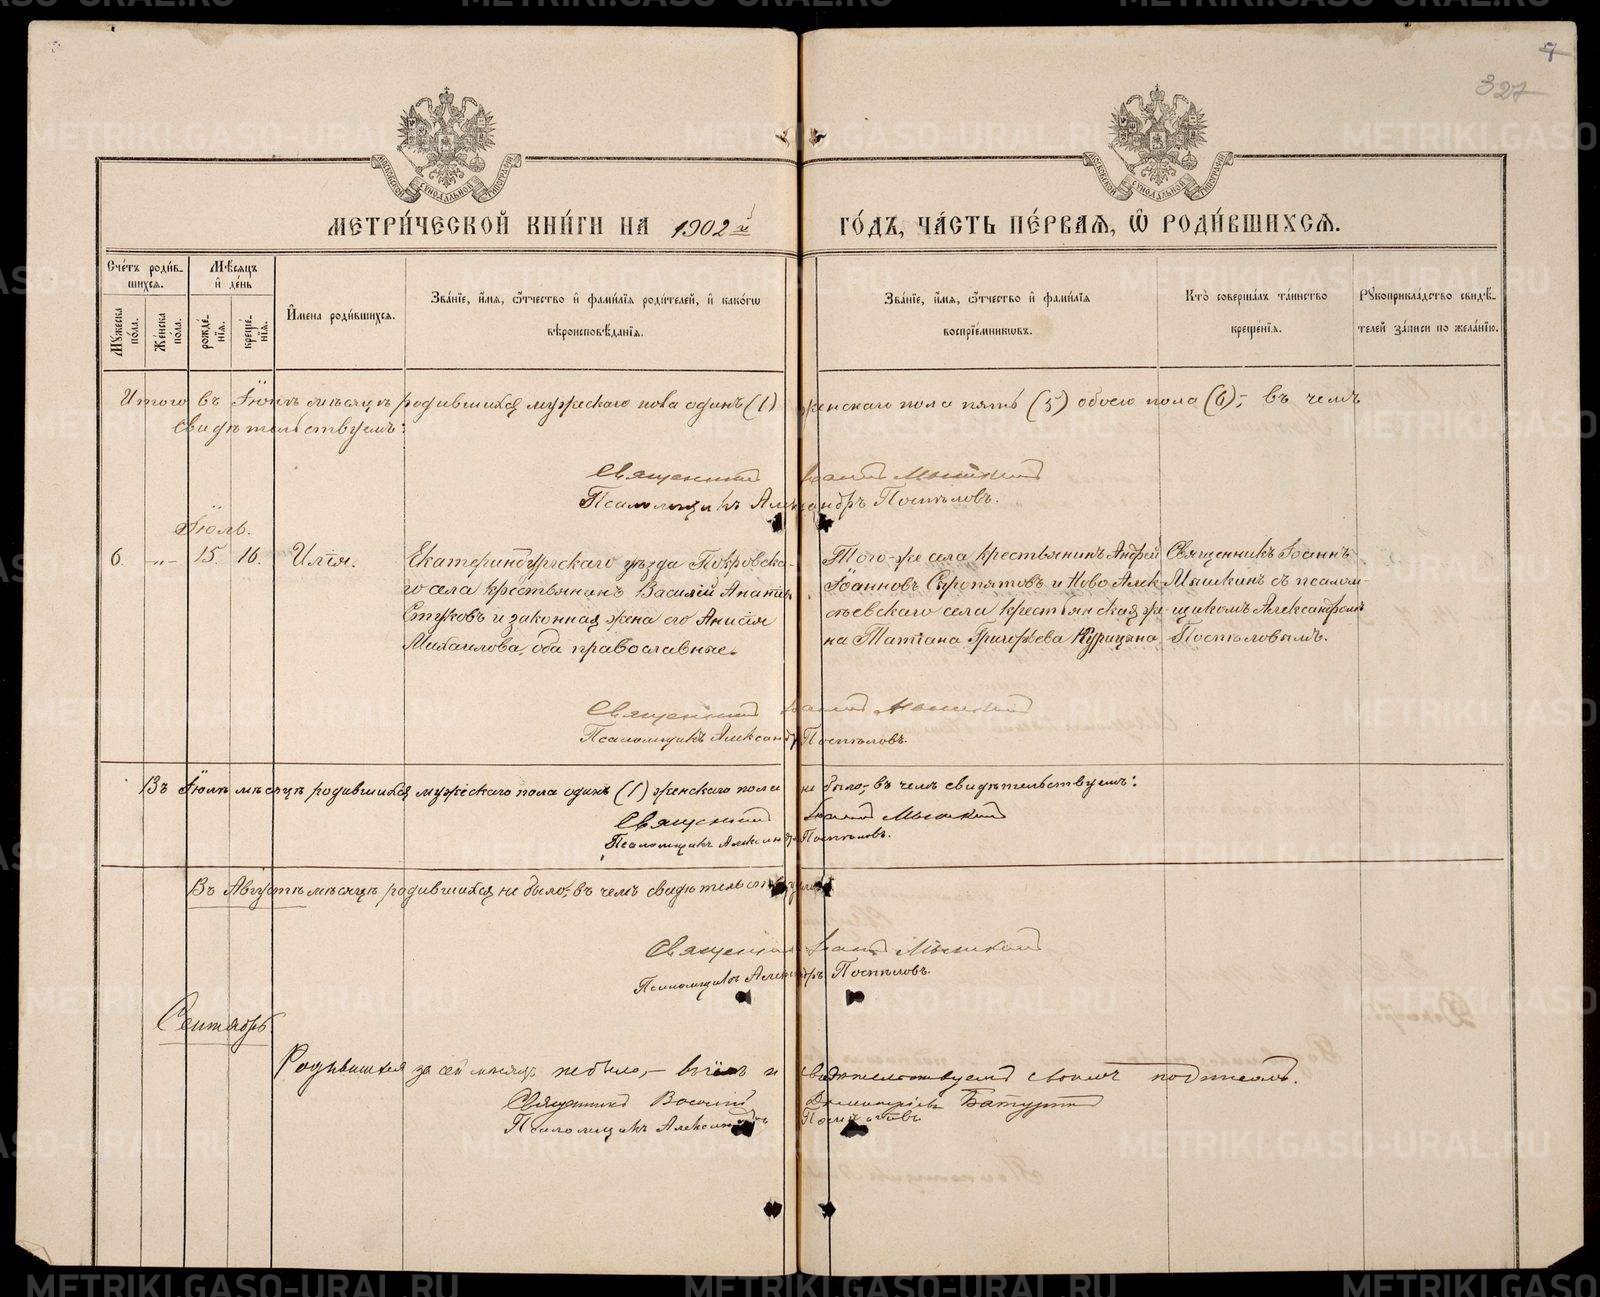 327
МОСКОВСКОЙ СѴНОДАЛЬНОЙ ТИПОГРАФІИ
МОСКОВСКОЙ СѴНОДАЛЬНОЙ ТИПОГРАФІИ
МЕТРИ́ЧЕСКОЙ КНИ́ГИ НА 1902й ГО́ДЪ, ЧА́СТЬ ПЕ́РВАѦ, Ѡ҆ РОДИ́ВШИХСѦ.
Сче́тъ роди́вшихсѧ.
Мѣ́сѧцъ и҆ де́нь
Мꙋ́жеска по́ла.
Же́нска по́ла.
рожде́нїѧ.
креще́нїѧ.
И҆мена̀ роди́вшихсѧ.
Зва́нїе, и҆́мѧ, ѻ҆́тчество и҆ фами́лїѧ роди́телей, и҆ како́гѡ
вѣроисповѣ́данїѧ.
Зва́нїе, и҆́мѧ, ѻ҆́тчество и҆ фами́лїѧ
воспрїе́мникѡвъ.
Кто̀ соверша́лъ та́инство
креще́нїѧ.
Рꙋкоприкла́дство свидѣ́телей за́писи по жела́нїю.
Итого въ Іюнѣ мѣсяцѣ родившихся мужескаго пола одинъ (1) женскаго пола пять (5) обоего пола (6), въ чемъ
свидѣтельствуемъ:
Священникъ Іоаннъ Мышкинъ
Псаломщикъ Александръ Поспѣловъ.
Іюль.
6. -„- 15. 16. Илія.
Екатеринбургскаго уѣзда Покровска-
го села крестьянинъ Василій Ипатіи
Стуковъ и законная жена его Анисія
Михаилова, оба православные.
Того-же села крестьянинъ Андрей
Іоанновъ Сыропятовъ и Ново Алек
сѣевскаго села крестьянская же-
на Татіана Григорьева Курицына
Священникъ Іоаннъ
Мышкинъ съ псалом-
щикомъ Александромъ
Поспѣловымъ.
Священникъ Іоаннъ Мышкинъ
Псаломщикъ Александръ Поспѣловъ.
Въ Іюлѣ мѣсяцѣ родившихся мужескаго пола одинъ (1) женскаго пола не было, въ чемъ свидѣтельствуемъ:
Священникъ Іоаннъ Мышкинъ
Псаломщикъ Александръ Поспѣловъ.
Въ Августѣ мѣсяцѣ родившихся не было, въ чемъ свидѣтельствуемъ
Священникъ Іоаннъ Мышкинъ
Псаломщикъ Александръ Поспѣловъ.
Сентябрь.
Родившихся за сей мѣсяцъ не было, — въ чемъ и свидѣтельствуемъ своимъ подписомъ.
Священникъ Василій Димитріевъ Батуринъ
Псаломщикъ Александръ Поспѣловъ
METRIKI.GASO-URAL.RU